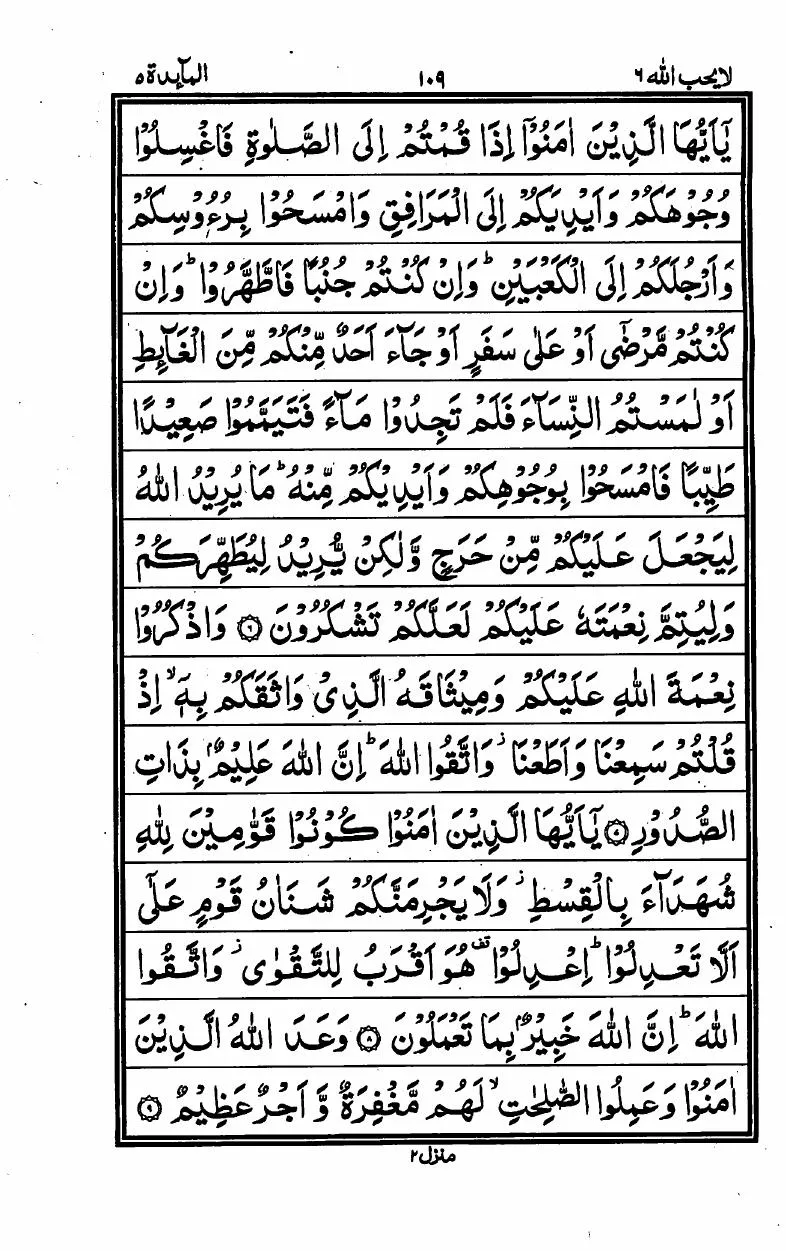 لا یحب الله ٦
١٠٩
المآىِٕدة ٥
یٰۤاَیُّهَا الَّذِیْنَ اٰمَنُوْۤا اِذَا قُمْتُمْ اِلَى الصَّلٰوةِ فَاغْسِلُوْا
وُجُوْهَكُمْ وَاَیْدِیَكُمْ اِلَى الْمَرَافِقِ وَامْسَحُوْا بِرُءُوْسِكُمْ
وَاَرْجُلَكُمْ اِلَى الْكَعْبَیْنِؕ وَاِنْ كُنْتُمْ جُنُبًا فَاطَّهَّرُوْاؕ وَاِنْ
كُنْتُمْ مَّرْضٰۤى اَوْ عَلٰى سَفَرٍ اَوْ جَآءَ اَحَدٌ مِّنْكُمْ مِّنَ الْغَآىِٕطِ
اَوْ لٰمَسْتُمُ النِّسَآءَ فَلَمْ تَجِدُوْا مَآءً فَتَیَمَّمُوْا صَعِیْدًا
طَیِّبًا فَامْسَحُوْا بِوُجُوْهِكُمْ وَاَیْدِیْكُمْ مِّنْهُؕ مَا یُرِیْدُ اللّٰهُ
لِیَجْعَلَ عَلَیْكُمْ مِّنْ حَرَجٍ وَّلٰكِنْ یُّرِیْدُ لِیُطَهِّرَكُمْ
وَلِیُتِمَّ نِعْمَتَهٗ عَلَیْكُمْ لَعَلَّكُمْ تَشْكُرُوْنَ ۝٦ وَاذْكُرُوْا
نِعْمَةَ اللّٰهِ عَلَیْكُمْ وَمِیْثَاقَهُ الَّذِیْ وَاثَقَكُمْ بِهٖۤۙ اِذْ
قُلْتُمْ سَمِعْنَا وَاَطَعْنَاؗ وَاتَّقُوا اللّٰهَؕ اِنَّ اللّٰهَ عَلِیْمٌۢ بِذَاتِ
الصُّدُوْرِ ۝٧ یٰۤاَیُّهَا الَّذِیْنَ اٰمَنُوْا كُوْنُوْا قَوّٰمِیْنَ لِلّٰهِ
شُهَدَآءَ بِالْقِسْطِؗ وَلَا یَجْرِمَنَّكُمْ شَنَاٰنُ قَوْمٍ عَلٰۤى
اَلَّا تَعْدِلُوْاؕ اِعْدِلُوْا۫ هُوَ اَقْرَبُ لِلتَّقْوٰىؗ وَاتَّقُوا
اللّٰهَؕ اِنَّ اللّٰهَ خَبِیْرٌۢ بِمَا تَعْمَلُوْنَ ۝٨ وَعَدَ اللّٰهُ الَّذِیْنَ
اٰمَنُوْا وَعَمِلُوا الصّٰلِحٰتِۙ لَهُمْ مَّغْفِرَةٌ وَّاَجْرٌ عَظِیْمٌ ۝٩
منزل ٢